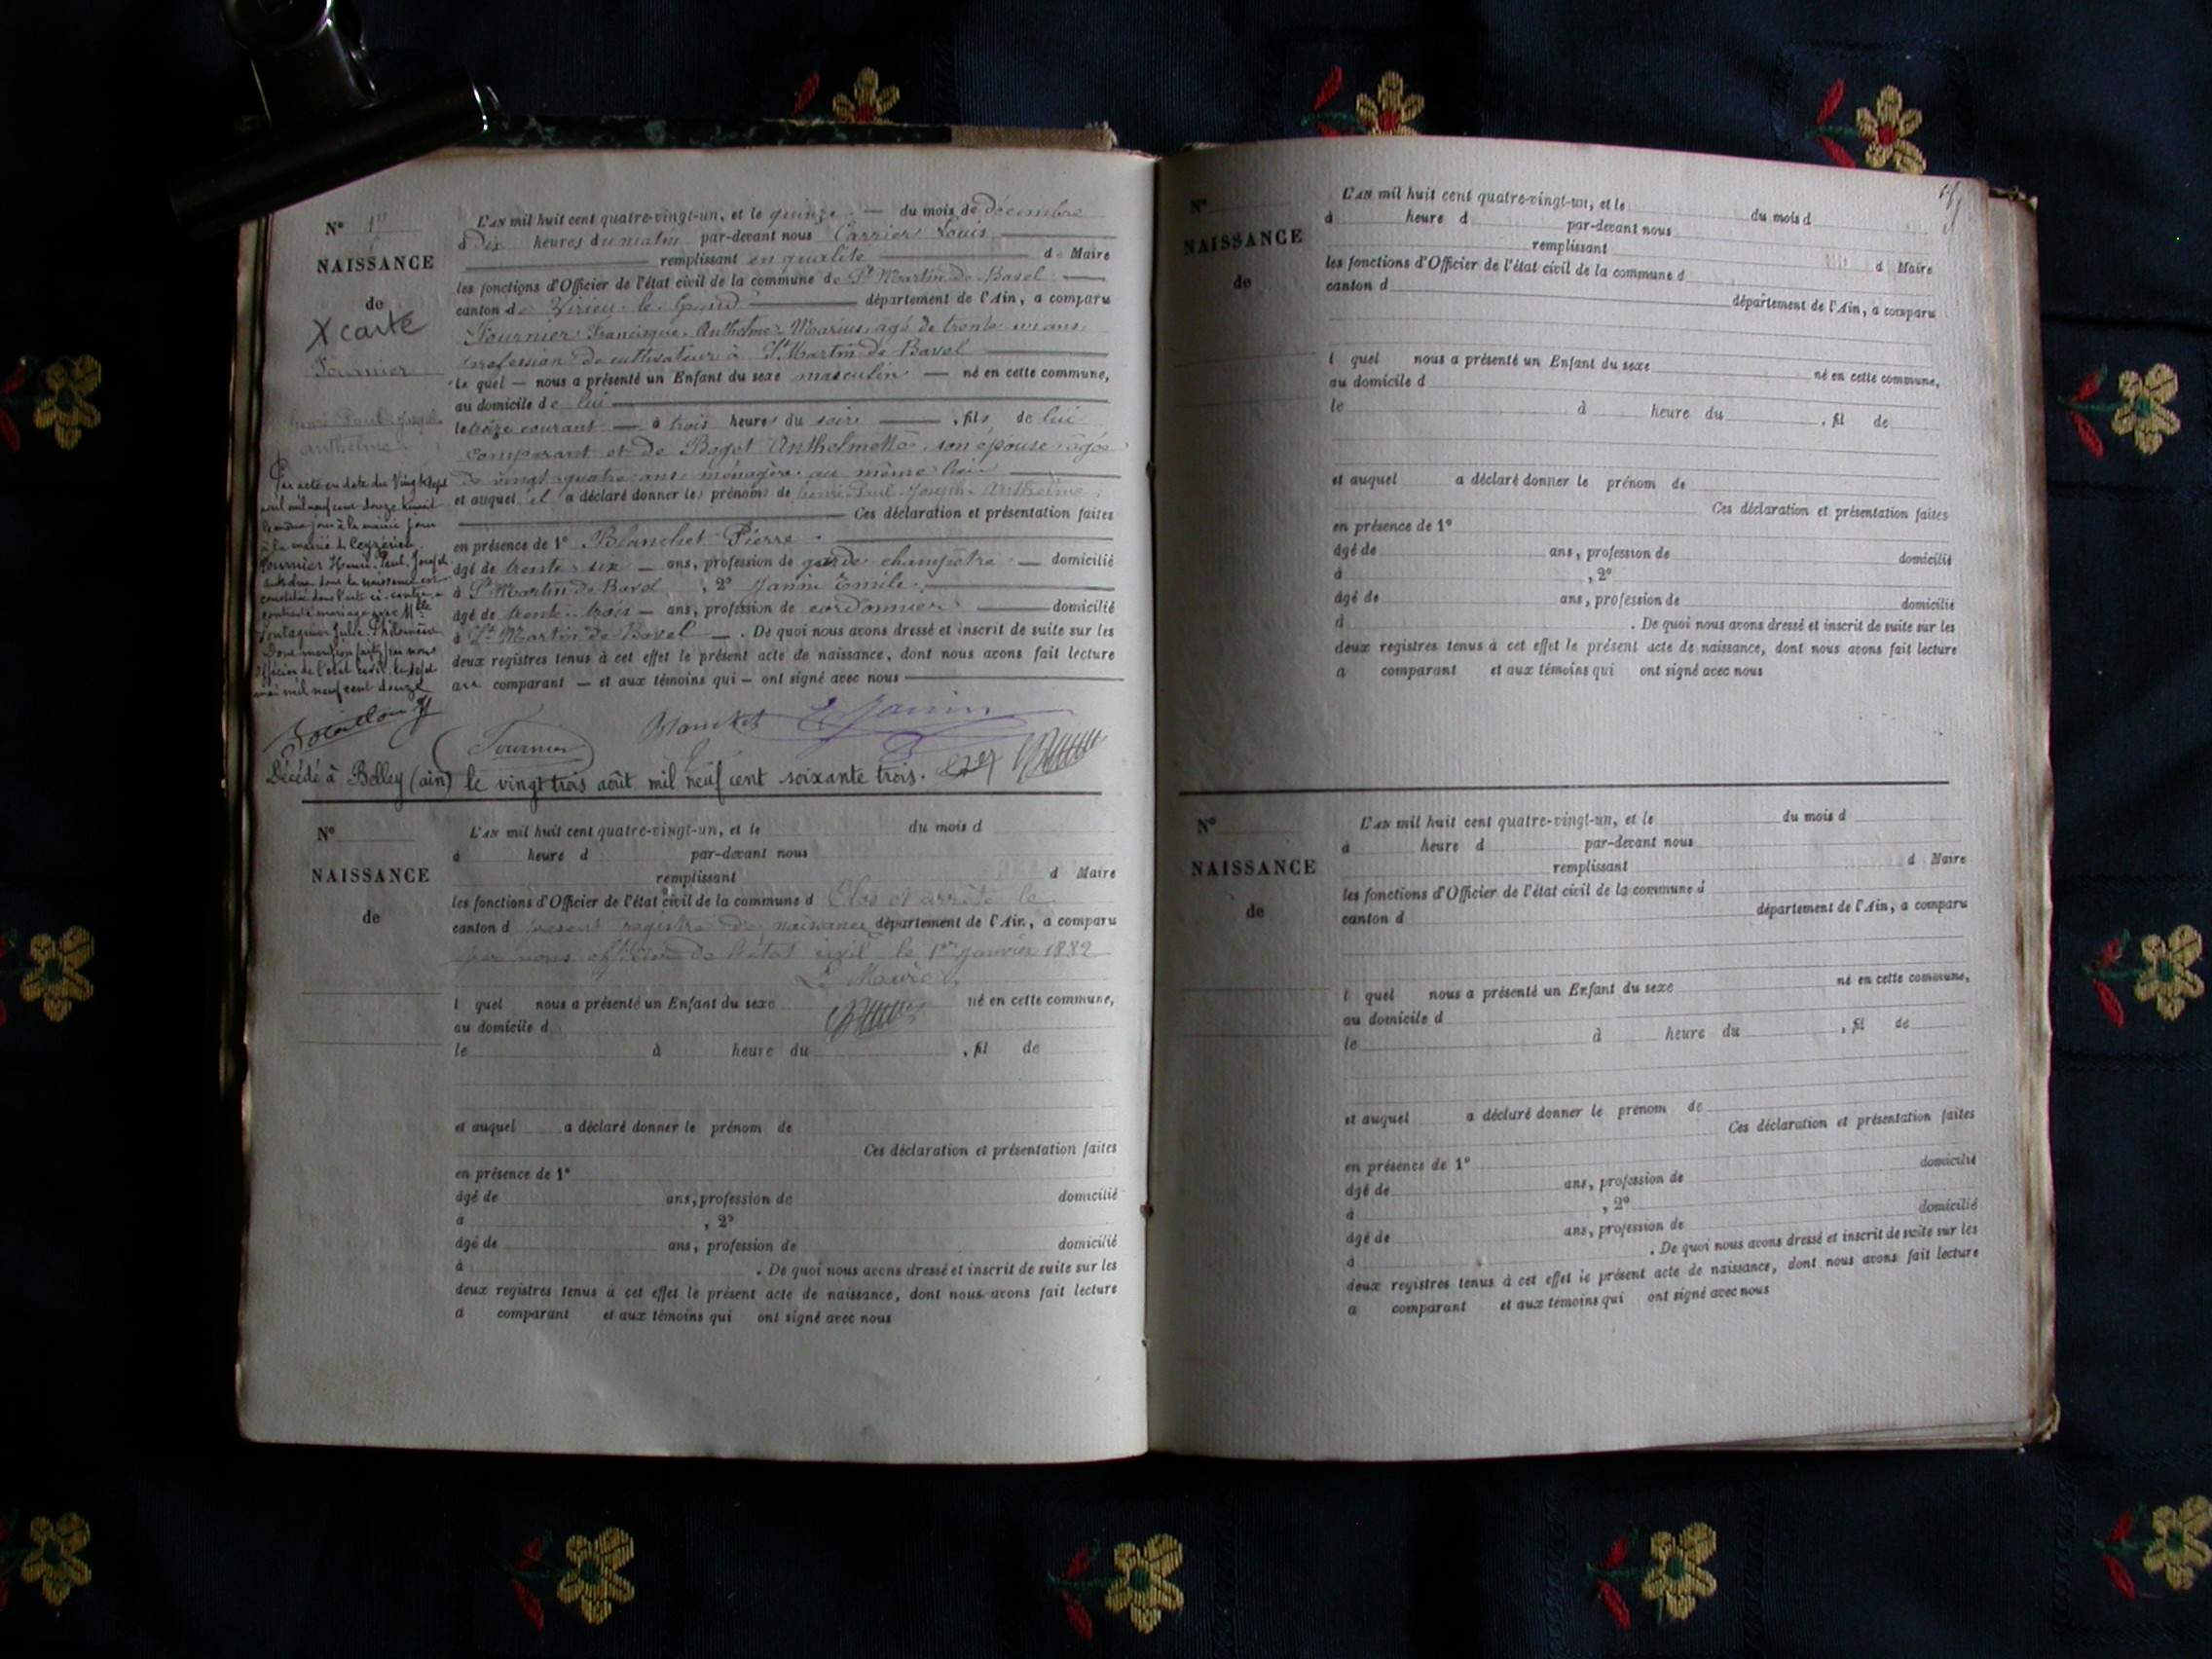 N° 1
NAISSANCE
de
X carte
Fournier
henri Paul Joseph
anthelme
L'AN mil huit cent quatre-vingt-un, et le quinze — du mois de décembre
à Dix heures du matin par-devant nous Carrier Louis
remplissant en qualité d Maire
les fonctions d'Officier de l'état civil de la commune de St Martin de Bavel
canton de Virieu le Grand département de l'Ain, a comparu
Fournier Francisque Anthelme Marius, agé de trente un ans
profession de cultivateur à St Martin de Bavel
le quel — nous a présenté un Enfant du sexe masculin — né en cette commune,
au domicile de lui
le treize courant — à trois heures du soire —, fils de lui
comparant et de Bogot Anthelmette son épouse agée
de vingt quatre ans ménagère au même lieu
et auquel il a déclaré donner les prénoms de henri Paul Joseph Anthelme
Ces déclaration et présentation faites
en présence de 1° Blanchet Pierre
âgé de trente six — ans, profession de garde champêtre — domicilié
à St Martin de Bavel, 2° Janin Emile
âgé de trente trois — ans, profession de cordonnier — domicilié
à St Martin de Bavel —. De quoi nous avons dressé et inscrit de suite sur les
deux registres tenus à cet effet le présent acte de naissance, dont nous avons fait lecture
au comparant — et aux témoins qui — ont signé avec nous
Par acte en date du Vingt sept
avril mil neuf cent douze
le même jour à la mairie
à la mairie de Ceyzérieu
Fournier Henri Paul Joseph
anthelme dont la naissance est
constatée dans l'acte ci-contre a
contracté mariage avec Mlle
Julie Philomène
Dont mention faite par nous
Officier de l'état civil, le sept
mai mil neuf cent douze
Fournier Blanchet E Janin
Décédé à Belley (ain) le vingt trois août mil neuf cent soixante trois.
N°
NAISSANCE
de
L'AN mil huit cent quatre-vingt-un, et le du mois d
à heure d par-devant nous
remplissant d Maire
les fonctions d'Officier de l'état civil de la commune d Clos et arrêté le
canton d présent registre de naissance département de l'Ain, a comparu
par nous officier de l'état civil le 1er janvier 1882
Le Maire
l quel nous a présenté un Enfant du sexe né en cette commune,
au domicile d
le à heure du, fil de
et auquel a déclaré donner le prénom de
Ces déclaration et présentation faites
en présence de 1°
âgé de ans, profession de domicilié
à, 2°
âgé de ans, profession de domicilié
à. De quoi nous avons dressé et inscrit de suite sur les
deux registres tenus à cet effet le présent acte de naissance, dont nous avons fait lecture
a comparant et aux témoins qui ont signé avec nous
N°
NAISSANCE
de
L'AN mil huit cent quatre-vingt-un, et le du mois d
à heure d par-devant nous
remplissant d Maire
les fonctions d'Officier de l'état civil de la commune d
canton d département de l'Ain, a comparu
l quel nous a présenté un Enfant du sexe né en cette commune,
au domicile d
le à heure du, fil de
et auquel a déclaré donner le prénom de
Ces déclaration et présentation faites
en présence de 1°
âgé de ans, profession de domicilié
à, 2°
âgé de ans, profession de domicilié
à. De quoi nous avons dressé et inscrit de suite sur les
deux registres tenus à cet effet le présent acte de naissance, dont nous avons fait lecture
a comparant et aux témoins qui ont signé avec nous
N°
NAISSANCE
de
L'AN mil huit cent quatre-vingt-un, et le du mois d
à heure d par-devant nous
remplissant d Maire
les fonctions d'Officier de l'état civil de la commune d
canton d département de l'Ain, a comparu
l quel nous a présenté un Enfant du sexe né en cette commune,
au domicile d
le à heure du, fil de
et auquel a déclaré donner le prénom de
Ces déclaration et présentation faites
en présence de 1°
âgé de ans, profession de domicilié
à, 2°
âgé de ans, profession de domicilié
à. De quoi nous avons dressé et inscrit de suite sur les
deux registres tenus à cet effet le présent acte de naissance, dont nous avons fait lecture
a comparant et aux témoins qui ont signé avec nous